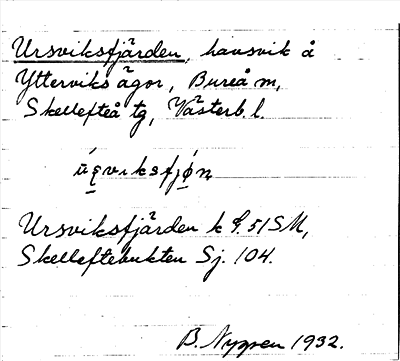 Ursviksfjärden, havsvik å
Ytterviks ägor, Bureå sn,
Skellefteå tg, Västerb. l.
Ursviksfjärden k 51 SM,
Skelleftebukten Sj. 104.
B. Nyman 1932.